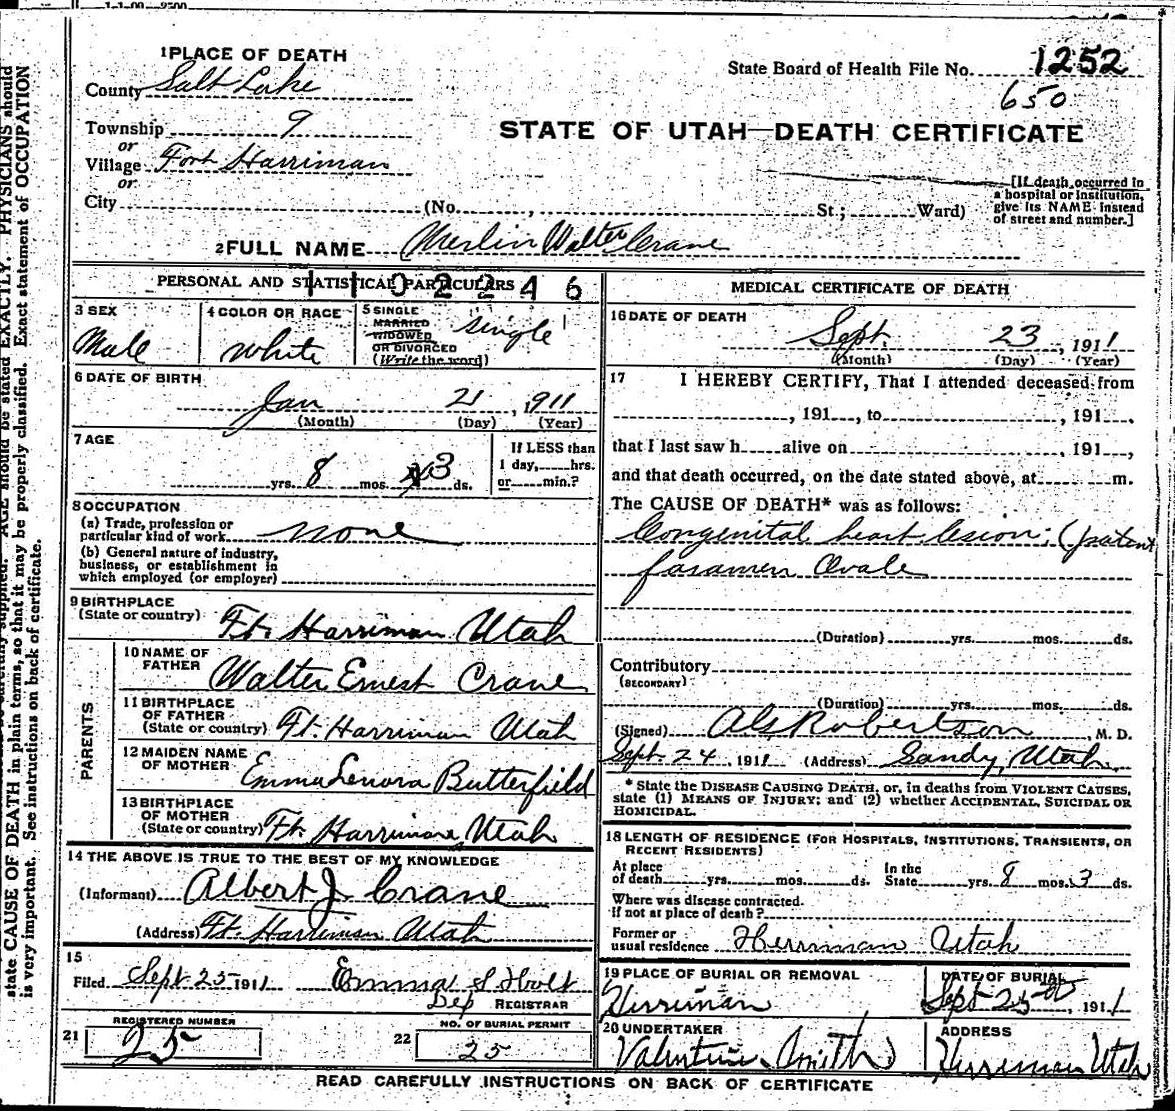 1-1-09—2500
1 PLACE OF DEATH
County Salt Lake
Township 9
or
Village Fort Harriman
or
City (No. , St.; Ward)
State Board of Health File No. 1252
650
STATE OF UTAH—DEATH CERTIFICATE
[If death occurred in
a hospital or institution,
give its NAME instead
of street and number.]
2 FULL NAME Merlin Walter Crane
PERSONAL AND STATISTICAL PARTICULARS
1102246
3 SEX
Male
4 COLOR OR RACE
White
5 SINGLE
MARRIED
WIDOWED
OR DIVORCED
(Write the word)
Single
6 DATE OF BIRTH
Jan 21, 1911
(Month) (Day) (Year)
7 AGE
yrs. 8 mos. 3 ds.
If LESS than
1 day, hrs.
or min.?
8 OCCUPATION
(a) Trade, profession or
particular kind of work none
(b) General nature of industry,
business, or establishment in
which employed (or employer)
9 BIRTHPLACE
(State or country) Ft. Harriman Utah
PARENTS
10 NAME OF
FATHER Walter Ernest Crane
11 BIRTHPLACE
OF FATHER
(State or country) Ft. Harriman Utah
12 MAIDEN NAME
OF MOTHER Emma Lenora Butterfield
13 BIRTHPLACE
OF MOTHER
(State or country) Ft. Harriman, Utah
14 THE ABOVE IS TRUE TO THE BEST OF MY KNOWLEDGE
(Informant) Albert J. Crane
(Address) Ft. Harriman Utah
15
Filed Sept 25 1911 Emma S Holt
Dep REGISTRAR
21 REGISTERED NUMBER
25
22 NO. OF BURIAL PERMIT
25
MEDICAL CERTIFICATE OF DEATH
16 DATE OF DEATH
Sept. 23, 1911
(Month) (Day) (Year)
17 I HEREBY CERTIFY, That I attended deceased from
, 191 , to , 191 ,
that I last saw h alive on , 191 ,
and that death occurred, on the date stated above, at m.
The CAUSE OF DEATH* was as follows:
Congenital heart lesion; (patent
foramen Ovale
(Duration) yrs. mos. ds.
Contributory
(SECONDARY)
(Duration) yrs. mos. ds.
(Signed) Robertson, M. D.
Sept. 24, 1911 (Address) Sandy, Utah.
* State the DISEASE CAUSING DEATH, or, in deaths from VIOLENT CAUSES,
state (1) MEANS OF INJURY; and (2) whether ACCIDENTAL, SUICIDAL OR
HOMICIDAL.
18 LENGTH OF RESIDENCE (FOR HOSPITALS, INSTITUTIONS, TRANSIENTS, OR
RECENT RESIDENTS)
At place
of death yrs. mos. ds.
In the
State yrs. 8 mos. 3 ds.
Where was disease contracted.
if not at place of death?
Former or
usual residence Herriman Utah
19 PLACE OF BURIAL OR REMOVAL
Herriman
DATE OF BURIAL
Sept 25th, 1911
20 UNDERTAKER
Valentine Smith
ADDRESS
Herriman Utah
READ CAREFULLY INSTRUCTIONS ON BACK OF CERTIFICATE
AGE should be stated EXACTLY. PHYSICIANS should
state CAUSE OF DEATH in plain terms, so that it may be properly classified. Exact statement of OCCUPATION
is very important. See instructions on back of certificate.